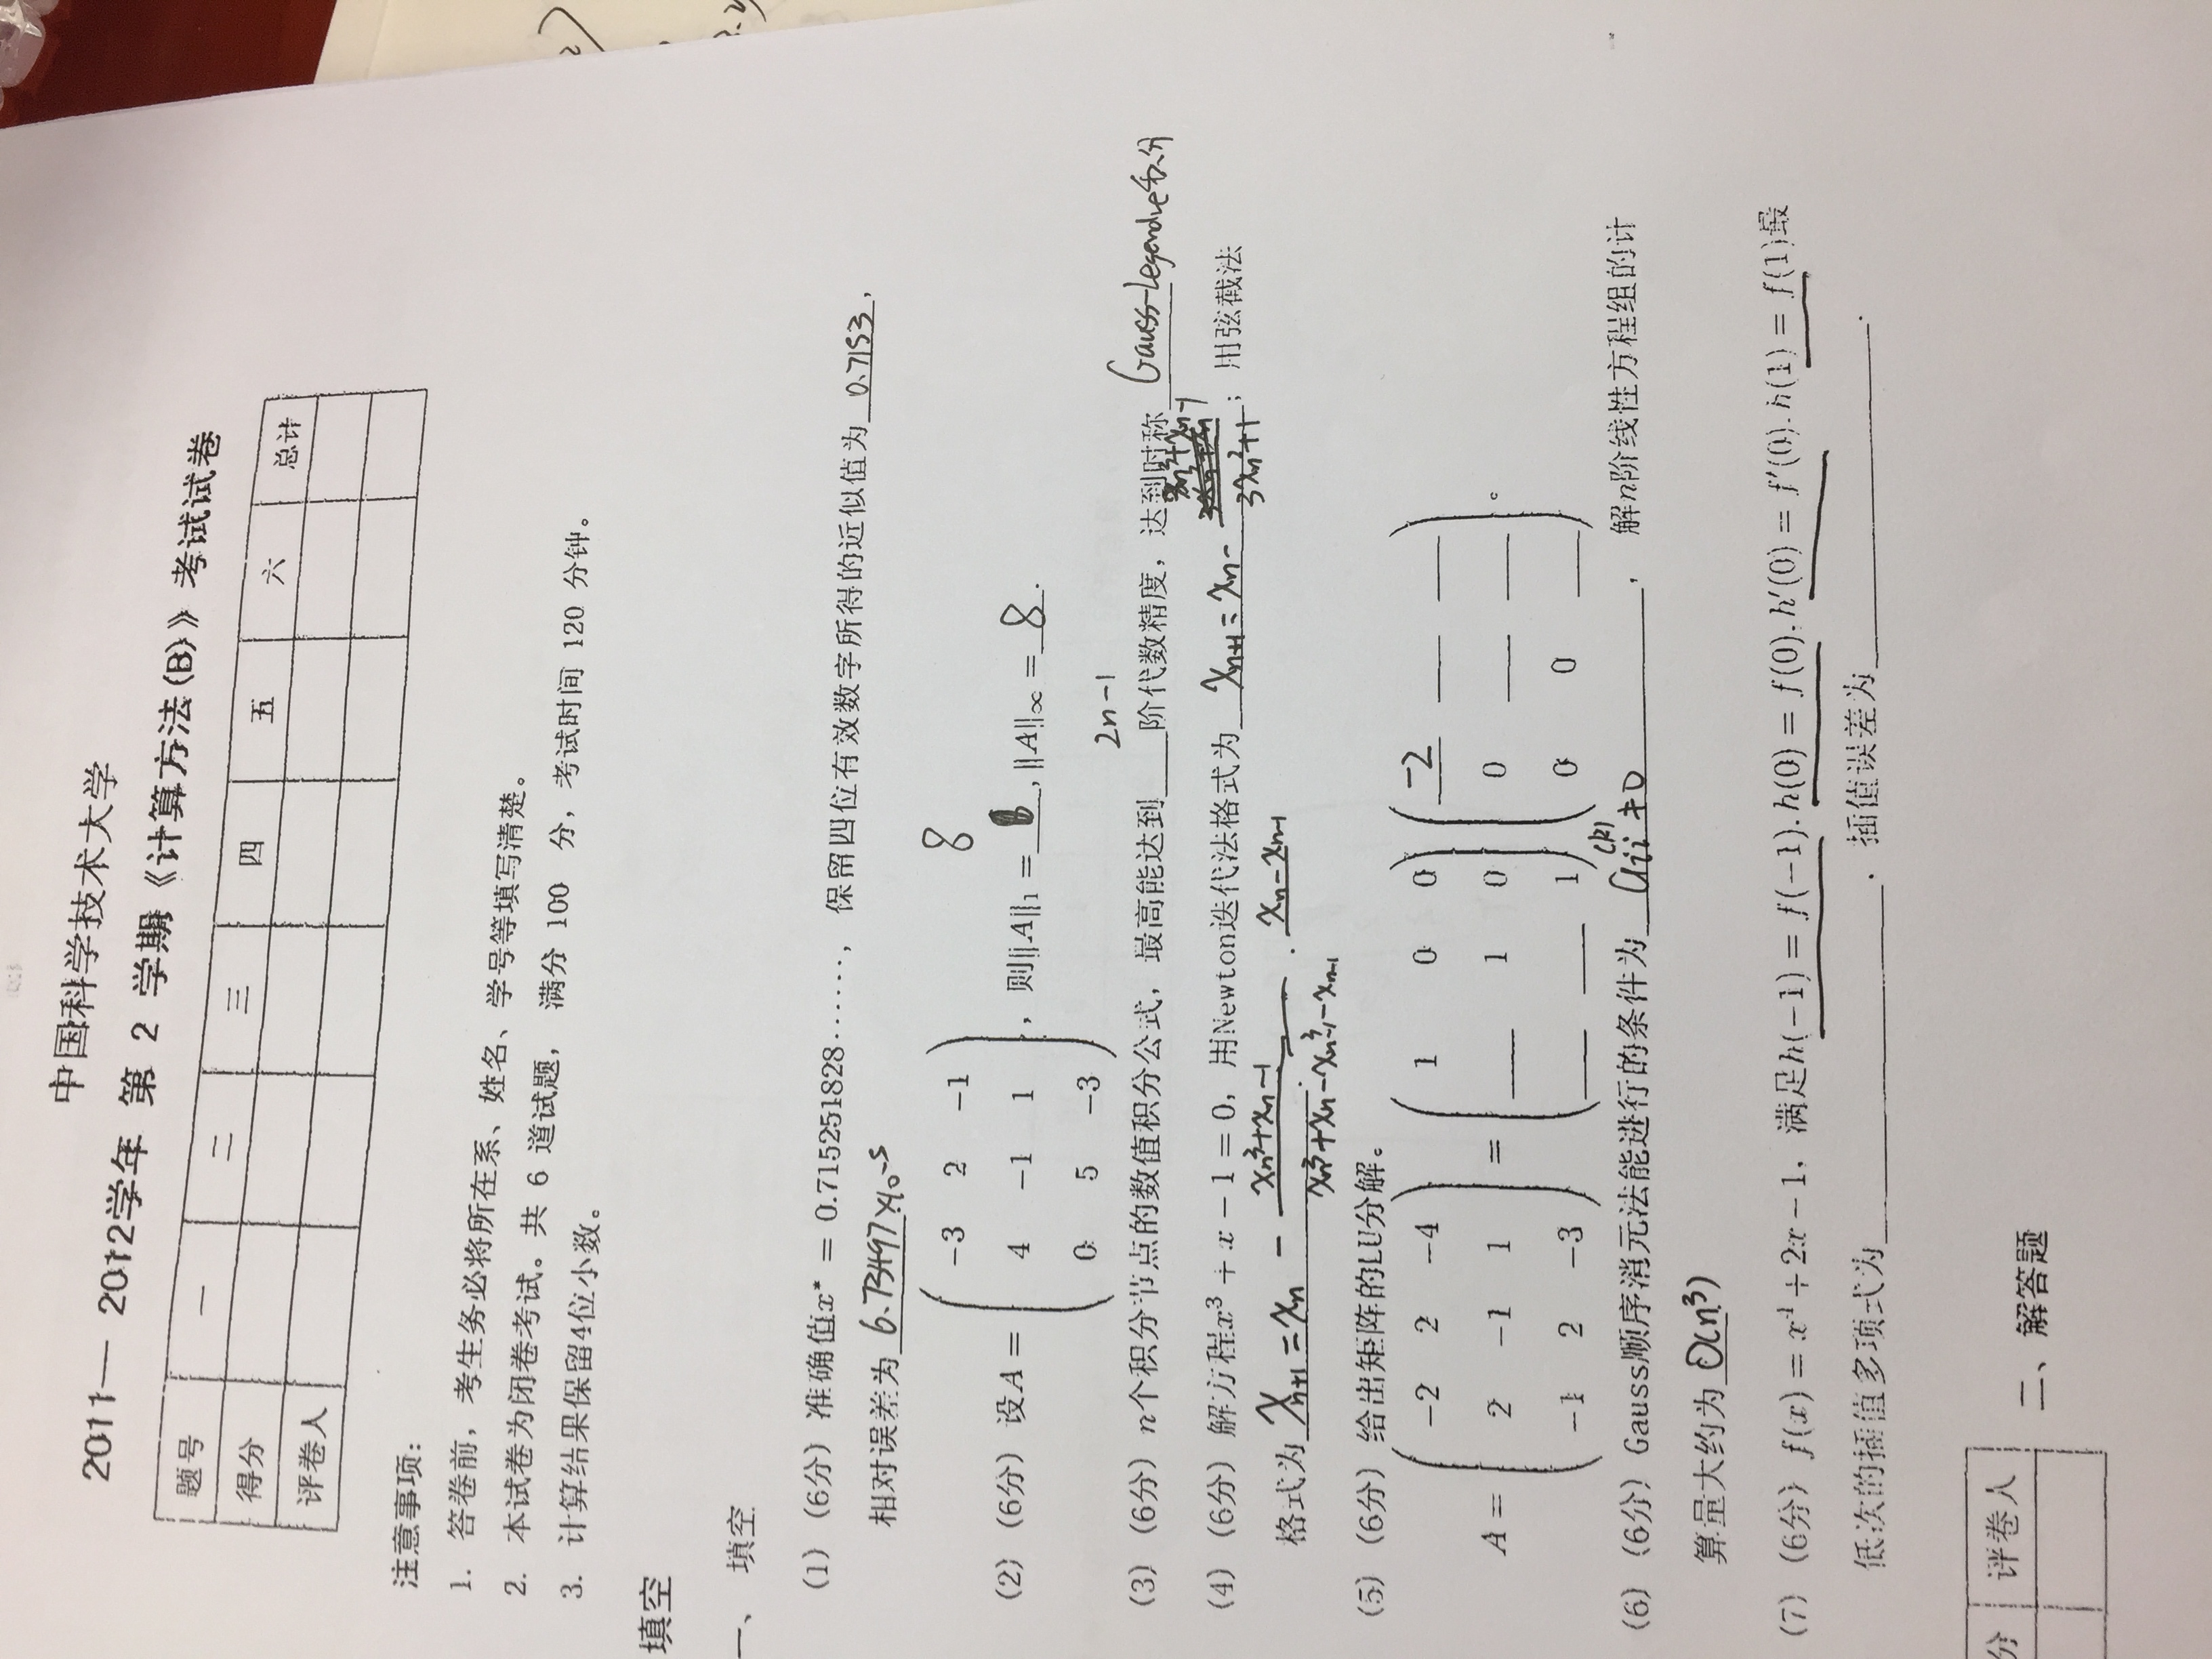 中国科学技术大学
2011— 2012学年 第 2 学期《计算方法(B)》考试试卷
题号 一 二 三 四 五 六 总计
得分
评卷人
注意事项:
1. 答卷前，考生务必将所在系、姓名、学号等填写清楚。
2. 本试卷为闭卷考试。共 6 道试题， 满分 100 分，考试时间 120 分钟。
3. 计算结果保留4位小数。
填空
一、 填空
(1) (6分) 准确值x* = 0.715251828······， 保留四位有效数字所得的近似值为 0.7153，
相对误差为 6.73497×10⁻⁵
8
(2) (6分) 设A = ( −3 2 −1 ; 4 −1 1 ; 0 5 −3 )，则‖A‖₁ = , ‖A‖∞ = 8.
2n-1
(3) (6分) n个积分节点的数值积分公式，最高能达到____阶代数精度，达到时称 Gauss-Legendre积分
(4) (6分) 解方程x³ + x − 1 = 0，用Newton迭代法格式为 xₙ₊₁ = xₙ - (xₙ³+xₙ-1)/(3xₙ²+1)；用弦截法
格式为 xₙ₊₁ = xₙ - (xₙ³+xₙ-1)/(xₙ³+xₙ-xₙ₋₁³-xₙ₋₁) · xₙ-xₙ₋₁
(5) (6分) 给出矩阵的LU分解。
A = ( −2 2 −4 ; 2 −1 1 ; −1 2 −3 ) = ( 1 0 0 ; ___ 1 0 ; ___ ___ 1 ) ( -2 ___ ___ ; 0 ___ ___ ; 0 0 ___ )。
(6) (6分) Gauss顺序消元法能进行的条件为 aᵢᵢ⁽ᵏ⁾≠0， 解n阶线性方程组的计
算量大约为 O(n³)
(7) (6分) f(x) = x⁴ + 2x − 1，满足h(−1) = f(−1), h(0) = f(0), h′(0) = f′(0), h(1) = f(1)最
低次的插值多项式为____________. 插值误差为____________.
分 评卷人
二、解答题